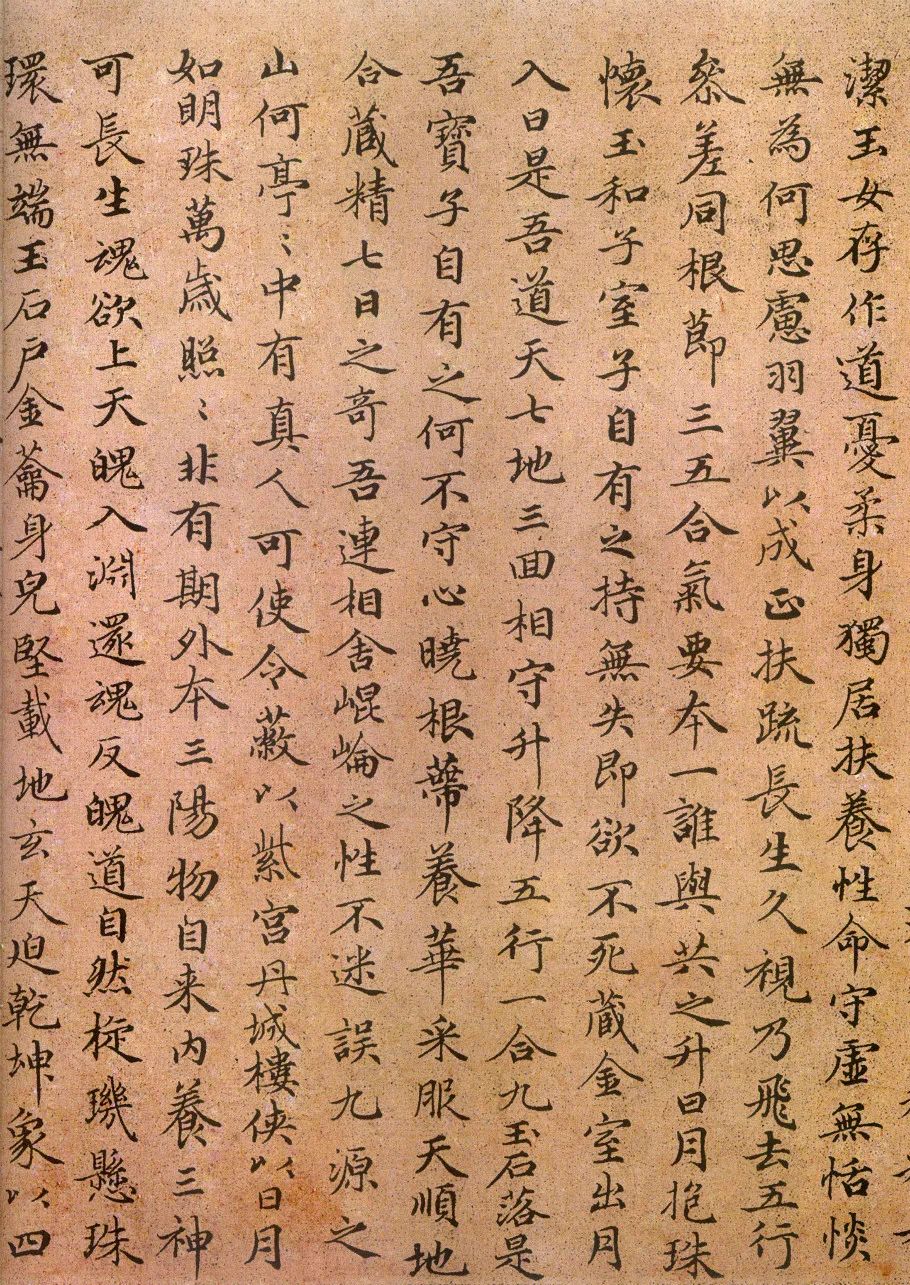 潔玉女存作道憂柔身獨居扶養性命守虛無恬惔
無為何思慮羽翼以成正扶疏長生久視乃飛去五行
叅差同根蓈三五合氣要本一誰與共之升日月抱珠
懷玉和子室子自有之持無失即欲不死藏金室出月
入日是吾道天七地三回相守升降五行一合九玉石落是
吾寶子自有之何不守心曉根蔕養華采服天順地
合藏精七日之奇吾連相舍崐崘之性不迷誤九源之
山何亭〻中有真人可使令蔽以紫宮丹城樓俠以日月
如明珠萬歲照〻非有期外本三陽物自来内養三神
可長生魂欲上天魄入淵還魂反魄道自然㨁璣懸珠
環無端玉石戶金籥身皃堅載地玄天迫乾坤象以四